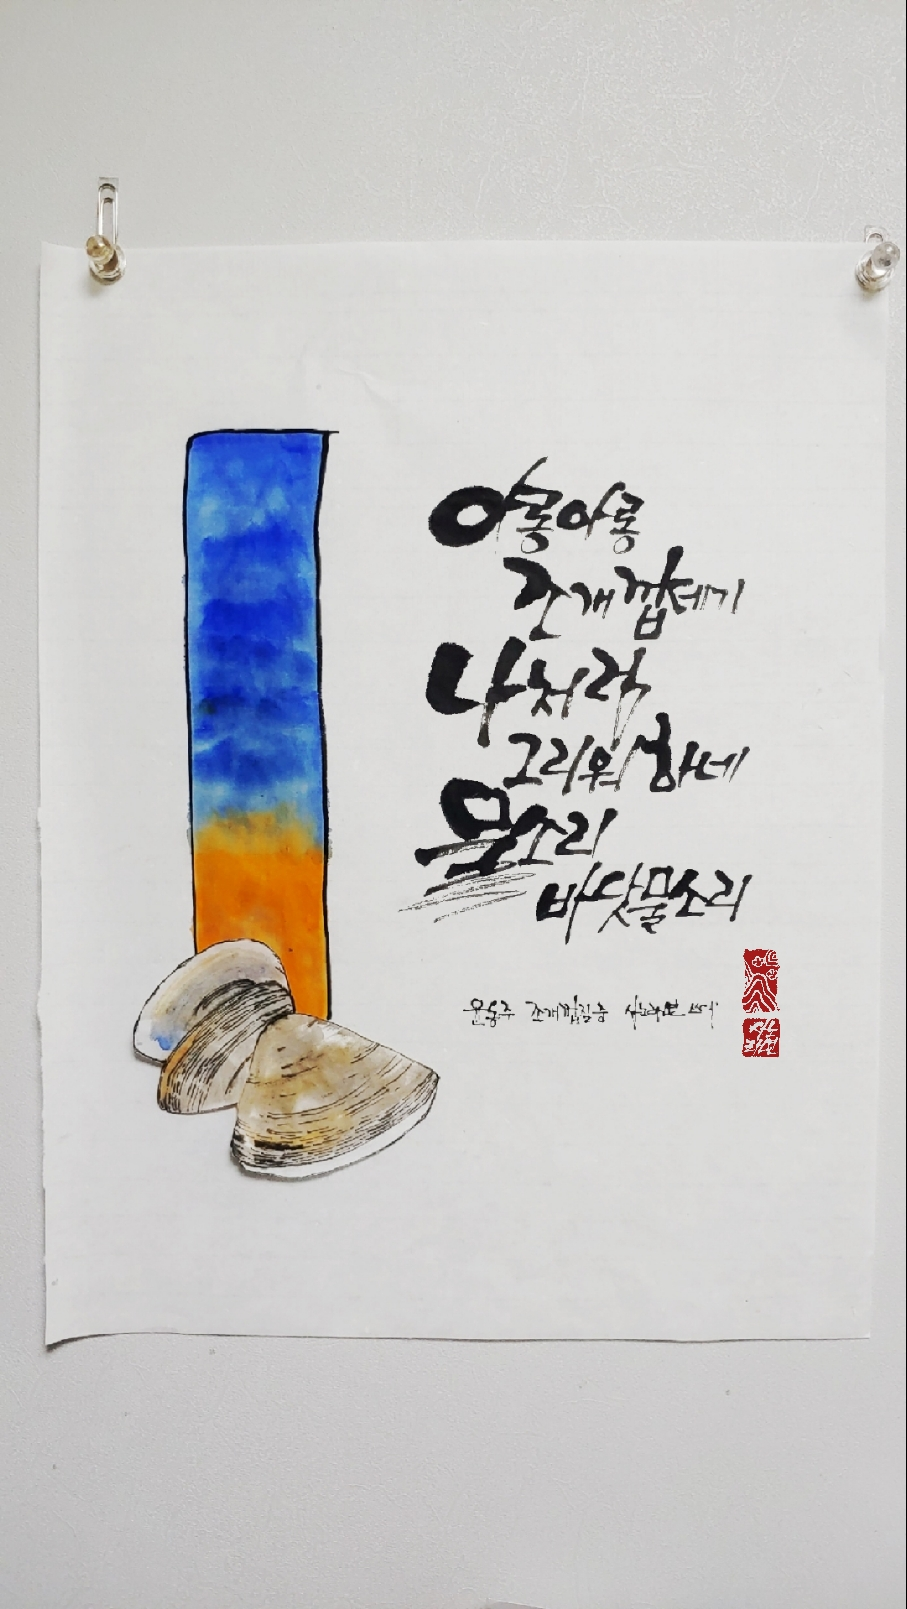 아롱아롱
조개껍데기
나처럼
그리워하네
물소리
바닷물소리
윤동주 조개껍질 중